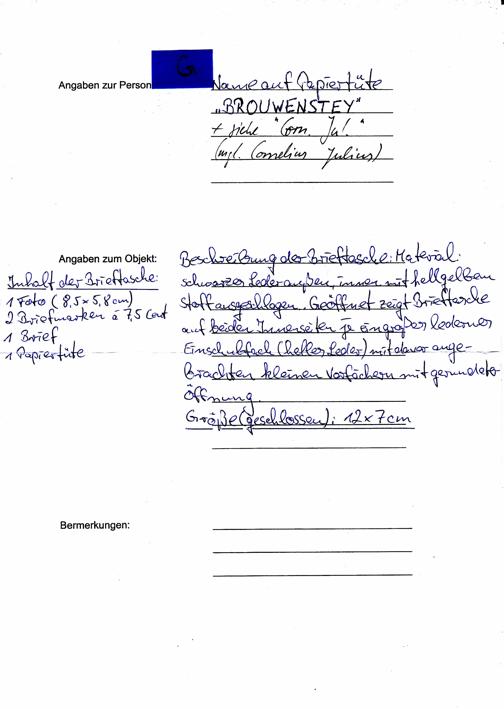 G
Angaben zur Person
Name auf Papiertüte
„BROUWENSTEY"
+ siehe "Corn. Jul."
(vgl. Cornelius Julius)
Angaben zum Objekt:
Inhalt der Brieftasche:
1 Foto (8,5 x 5,8 cm)
2 Briefmarken á 7,5 Cent
1 Brief
1 Papiertüte
Beschreibung der Brieftasche: Material:
schwarzer Leder außen, innen mit hellgelbem
Stoff ausgeschlagen. Geöffnet zeigt Brieftasche
auf beiden Innenseiten je ein großes ledernes
Einschubfach (helles Leder) mit davor ange-
brachten kleinen Vorfächern mit gerundeter
Öffnung.
Größe (geschlossen): 12 x 7 cm
Bermerkungen: